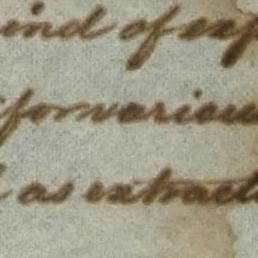 ind of exp
for variou
as extract